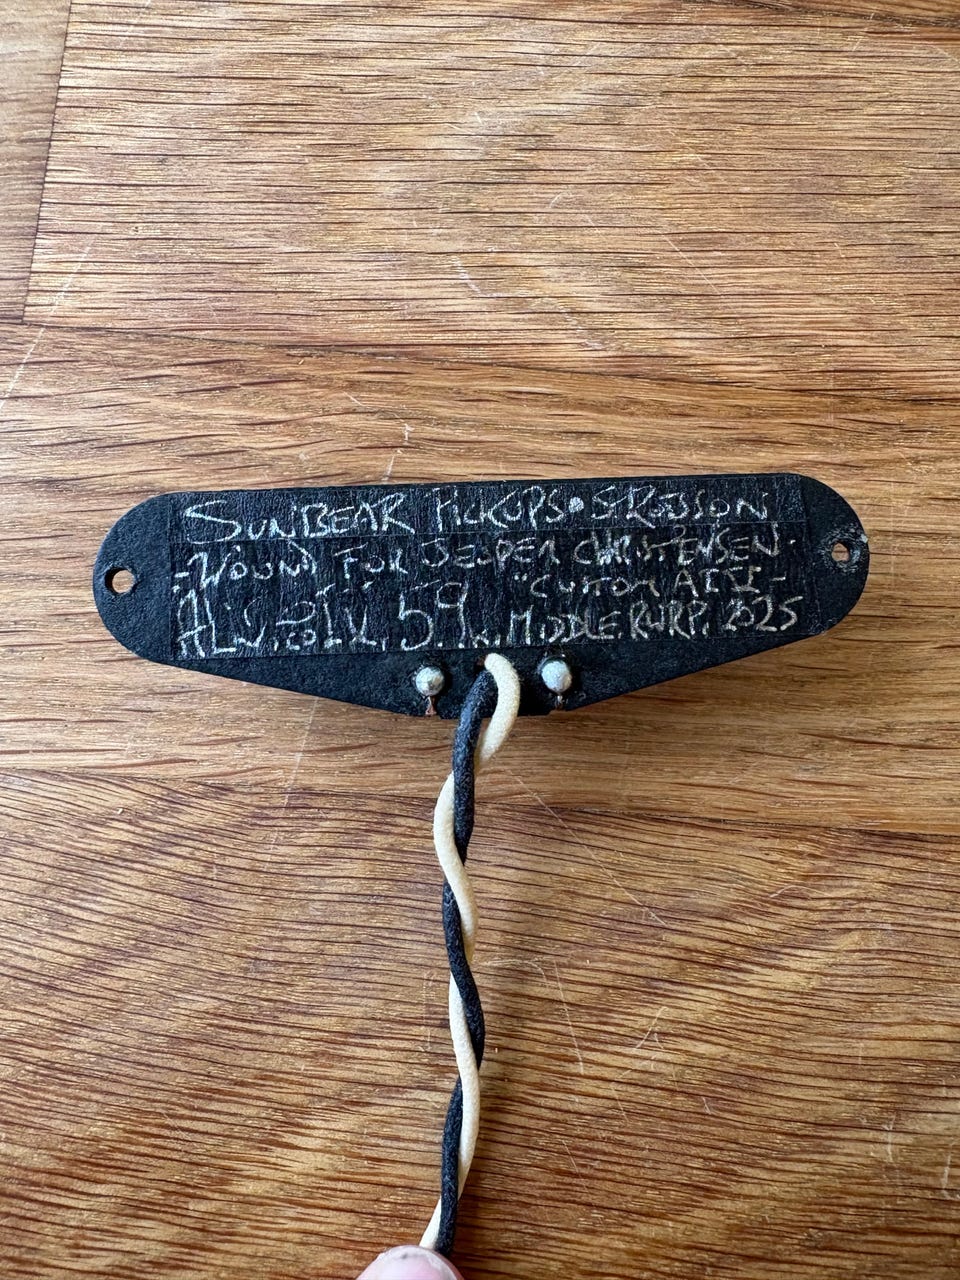 SUNBEAR PICKUPS • S. ROBSON
- WOUND FOR JESPER CHRISTENSEN -
"CUSTOM
ALNICO IV. 59. MIDDLE RWRP. 2025